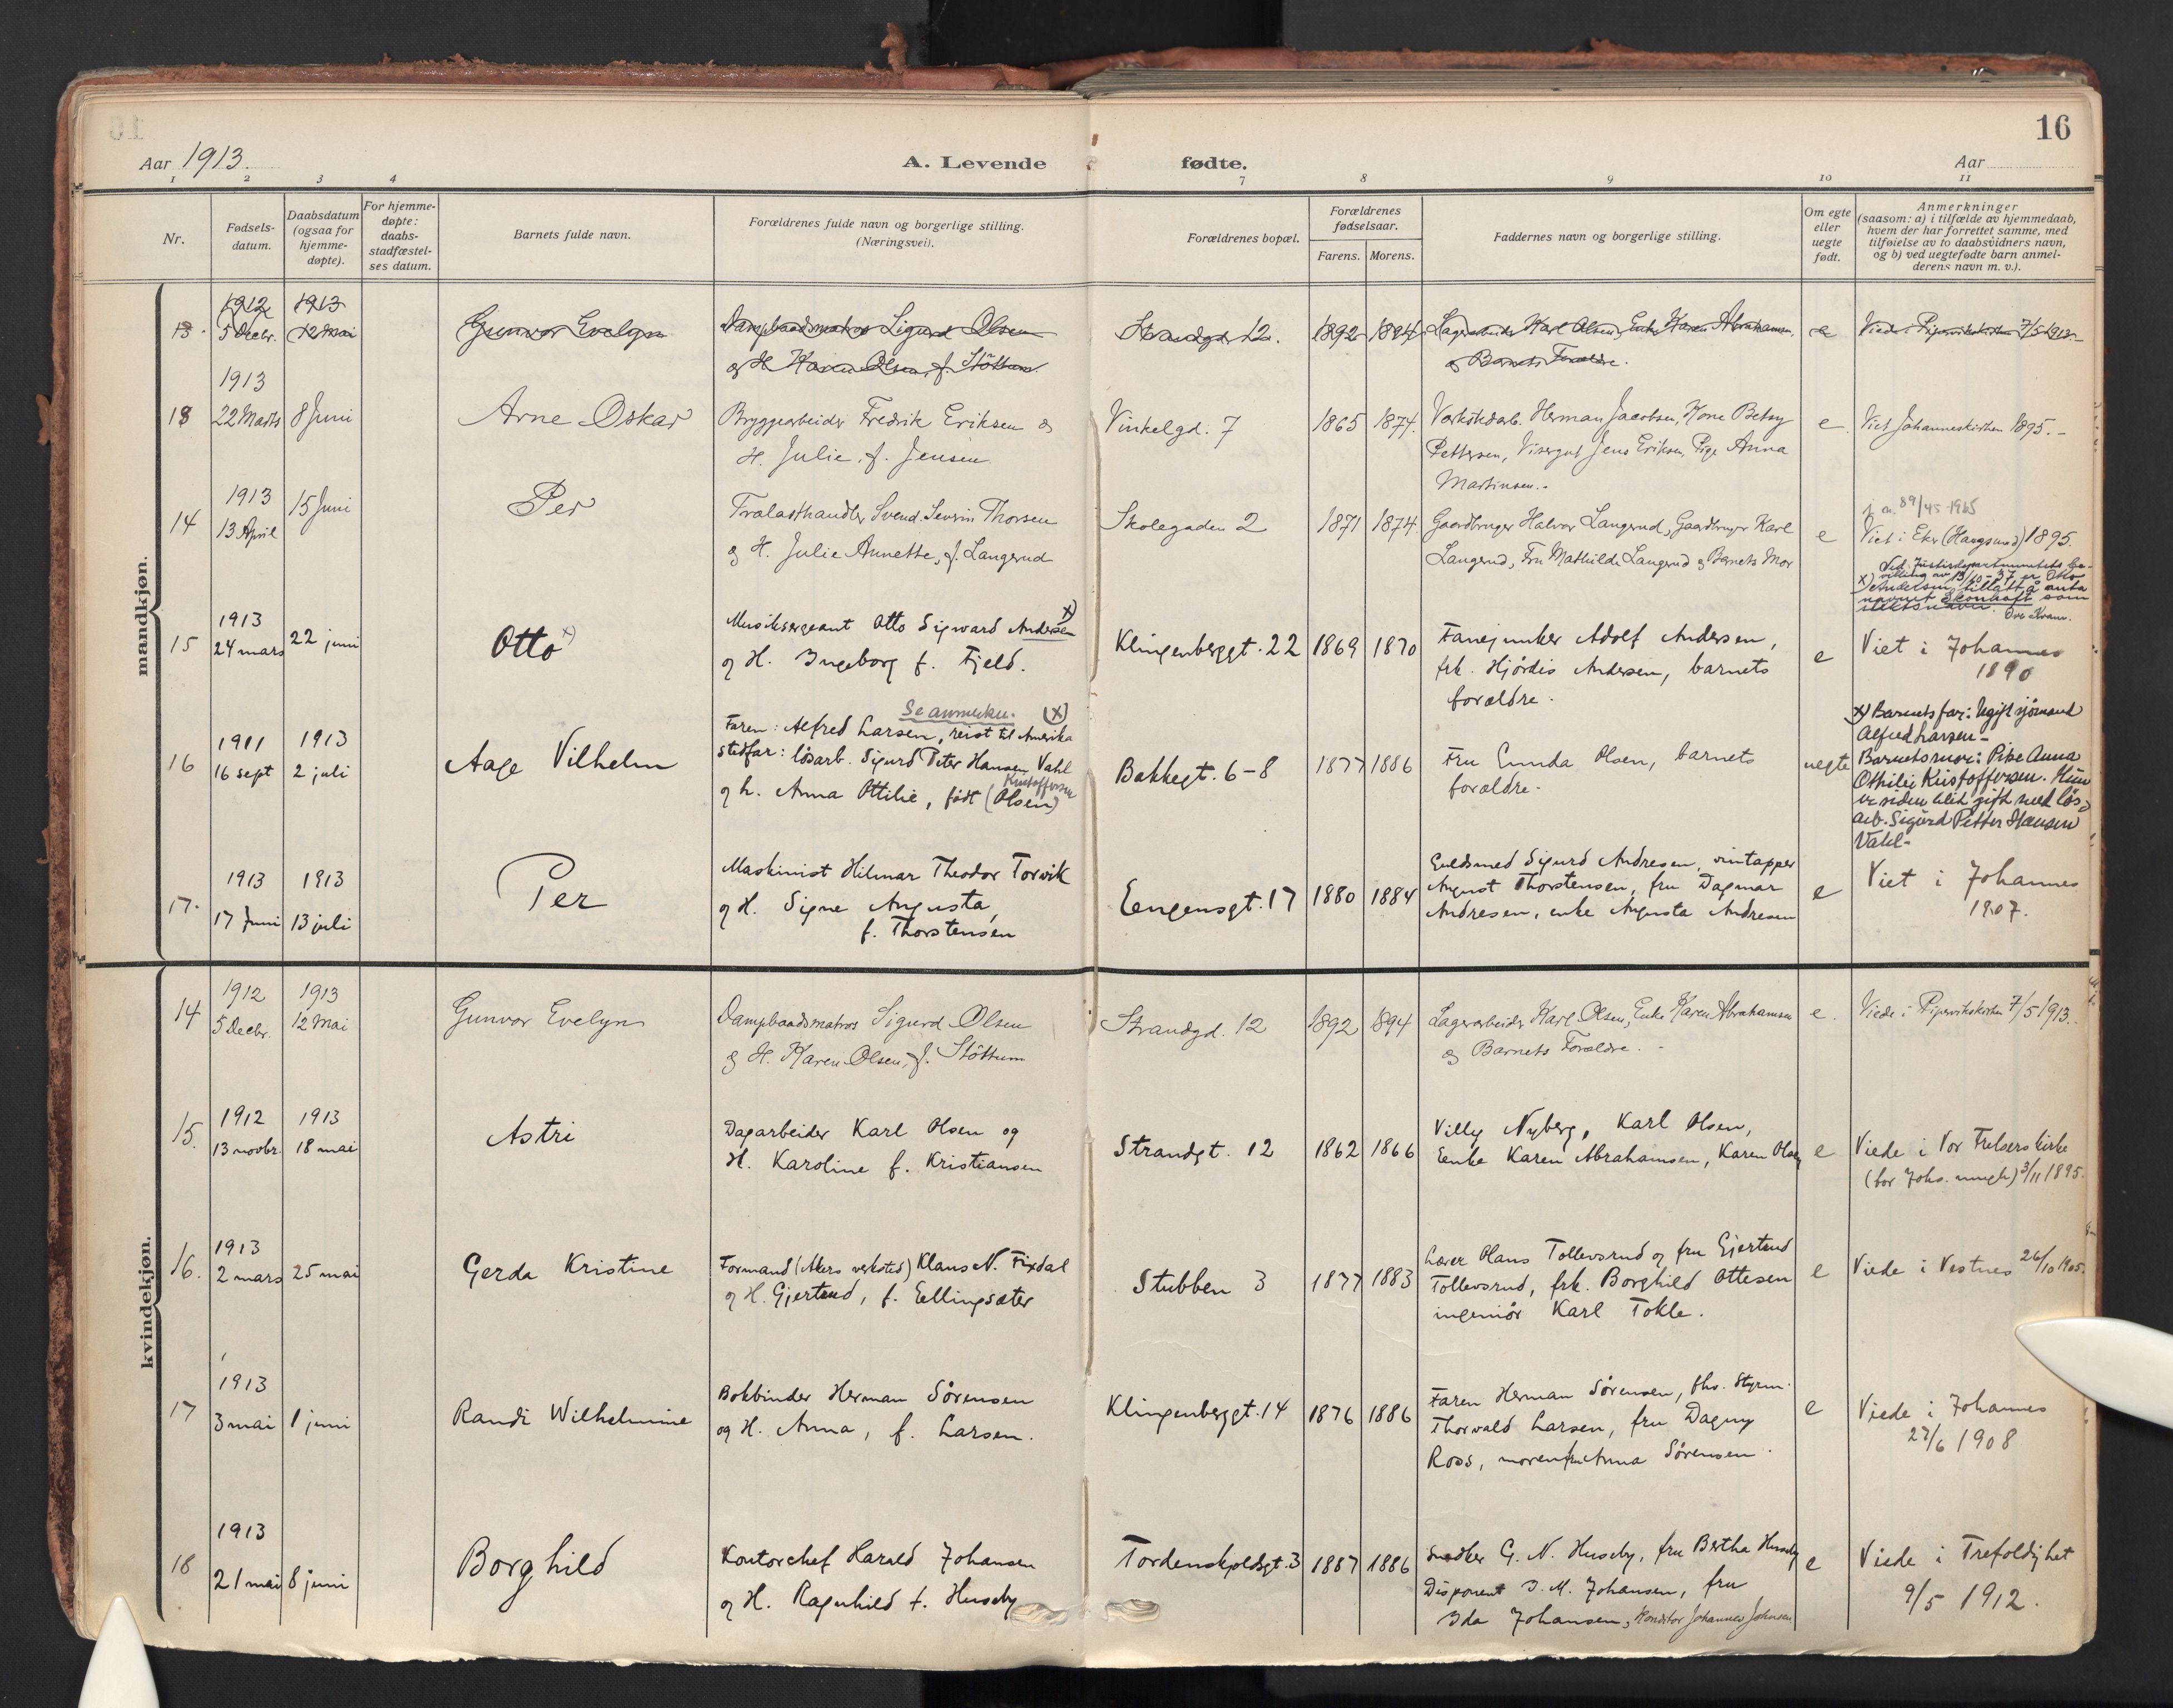 16
Aar 1913.
A. Levende fødte.
Aar
1 2 3 4 7 8 9 10 11
Nr.
Fødsels-
datum.
Daabsdatum
(ogsaa for
hjemme-
døpte).
For hjemme-
døpte:
daabs-
stadfæstel-
ses datum.
Barnets fulde navn.
Forældrenes fulde navn og borgerlige stilling.
(Næringsvei).
Forældrenes bopæl.
Forældrenes
fødselsaar.
Farens. Morens.
Faddernes navn og borgerlige stilling.
Om egte
eller
uegte
født.
Anmerkninger
(saasom: a) i tilfælde av hjemmedaab,
hvem der har forrettet samme, med
tilføielse av to daabsvidners navn,
og b) ved uegtefødte barn anmel-
derens navn m. v.).
mandkjøn.
13.
1912
5 Decbr.
1913
12 Mai
Gunvor Evelyn
Dampbaadsmatros Sigurd Olsen
og H. Karen Olsen, f. Støttum
Strandgd. 12.
1892 1894
Lagerarbeider Karl Olsen, Enke Karen Abrahamsen,
og Barnets Forældre.
e
Viede i Pipervikskirken 7/5 1913.
13
1913
22 Marts
8 Juni
Arne Oskar
Bryggearbeider Fredrik Eriksen og
H. Julie, f. Jensen
Vinkelgd. 7
1865 1874.
Verkstedarb. Herman Jacobsen, Kone Betsy
Pettersen, Visergut Jens Eriksen, Pige Anna
Martinsen.
e.
Viet Johanneskirken 1895.
14
1913
13 April
15 Juni
Per
Trælasthandler Svend Severin Thorsen
og H. Julie Annette, f. Langerud
Skolegaden 2
1871 1874.
Gaardbruger Halvor Langerud, Gaardbruger Karl
Langerud, Fru Mathilde Langerud og Barnets Mor
e
89/45 1965
Viet i Eker (Haugsund) 1895.
15
1913
24 mars
22 juni
Otto x)
Musiksergeant Otto Sigward Andersen x)
og H. Ingeborg f. Fjeld.
Klingenberggt. 22
1869 1870
Fanejunker Adolf Andersen,
frk. Hjørdis Andersen, barnets
forældre.
e
x) Ved Justisdepartementets be-
villing av 13/10-37 er Otto
Andersen tillatt å anta
navnet Skonhoft som
slektsnavn.
Viet i Johannes
1890
16
1911
16 sept
1913
2 juli
Aage Vilhelm
Se anmerkn. (x)
Faren: Alfred Larsen, reist til Amerika
stedfar: løsarb. Sigurd Peter Hansen Vahl
og h. Anna Ottilie, født (Olsen) Kristoffersen
Bakkegt. 6-8
1877 1886
Fru Gunda Olsen, barnets
forældre.
uegte
x) Barnets far: Ugift sjømand
Alfred Larsen -
Barnets mor: Pike Anna
Othilie Kristoffersen. Hun
er siden blit gift med løs-
arb. Sigurd Petter Hansen
Vahl -
17.
1913
17 Juni
1913
13 juli
Per
Maskinist Hilmar Theodor Torvik
og H. Signe Augusta,
f. Thorstensen
Eengensgt. 17
1880 1884
Guldsmed Sigurd Andresen, vintapper
August Thorstensen, fru Dagmar
Andresen, enke Augusta Andresen
e
Viet i Johannes
1907.
kvindekjøn.
14
1912
5 Decbr.
1913
12 Mai
Gunvor Evelyn
Dampbaadsmatros Sigurd Olsen
og H. Karen Olsen, f. Støttum
Strandgd. 12
1892 1894
Lagerarbeider Karl Olsen, Enke Karen Abrahamsen
og Barnets Forældre.
e.
Viede i Pipervikskirken 7/5 1913.
15.
1912
13 novbr.
1913
18 mai
Astri
Dagarbeider Karl Olsen og
H. Karoline f. Kristiansen
Strandgt. 12
1862 1866
Villy Nyberg, Karl Olsen,
Enke Karen Abrahamsen, Karen Olsen
e
Viede i Vor Frelsers kirke
(for Johs. mngh) 3/11 1895.
16.
1913
2 mars
25 mai
Gerda Kristine
Formand (Akers verksted) Klaus N. Fixdal
og H. Gjertrud, f. Eellingsæter
Stubben 3
1877 1883
Lærer Olaus Tollevsrud og fru Gjertrud
Tollevsrud, frk. Borghild Ottesen
ingeniør Karl Tokle.
e
Viede i Vestnes 26/10 1905.
17
1913
3 mai
1 juni
Randi Wilhelmine
Bokbinder Herman Sørensen
og H. Anna, f. Larsen.
Klingenberggt. 14
1876 1886
Faren Herman Sørensen, fhv. Styrm.
Thorvald Larsen, fru Dagny
Ross, moren fru Anna Sørensen.
e
Viede i Johannes
27/6 1908
18
1913
21 mai
8 juni
Borghild
Kontorchef Harald Johansen
og H. Ragnhild f. Huseby
Tordenskjoldsgt. 3
1887 1886
Snedker G. N. Huseby, fru Bertha Huseby
Disponent I. M. Johansen, fru
Ida Johansen, Konditor Johannes Johnsen
e
Viede i Trefoldighet
9/5 1912.